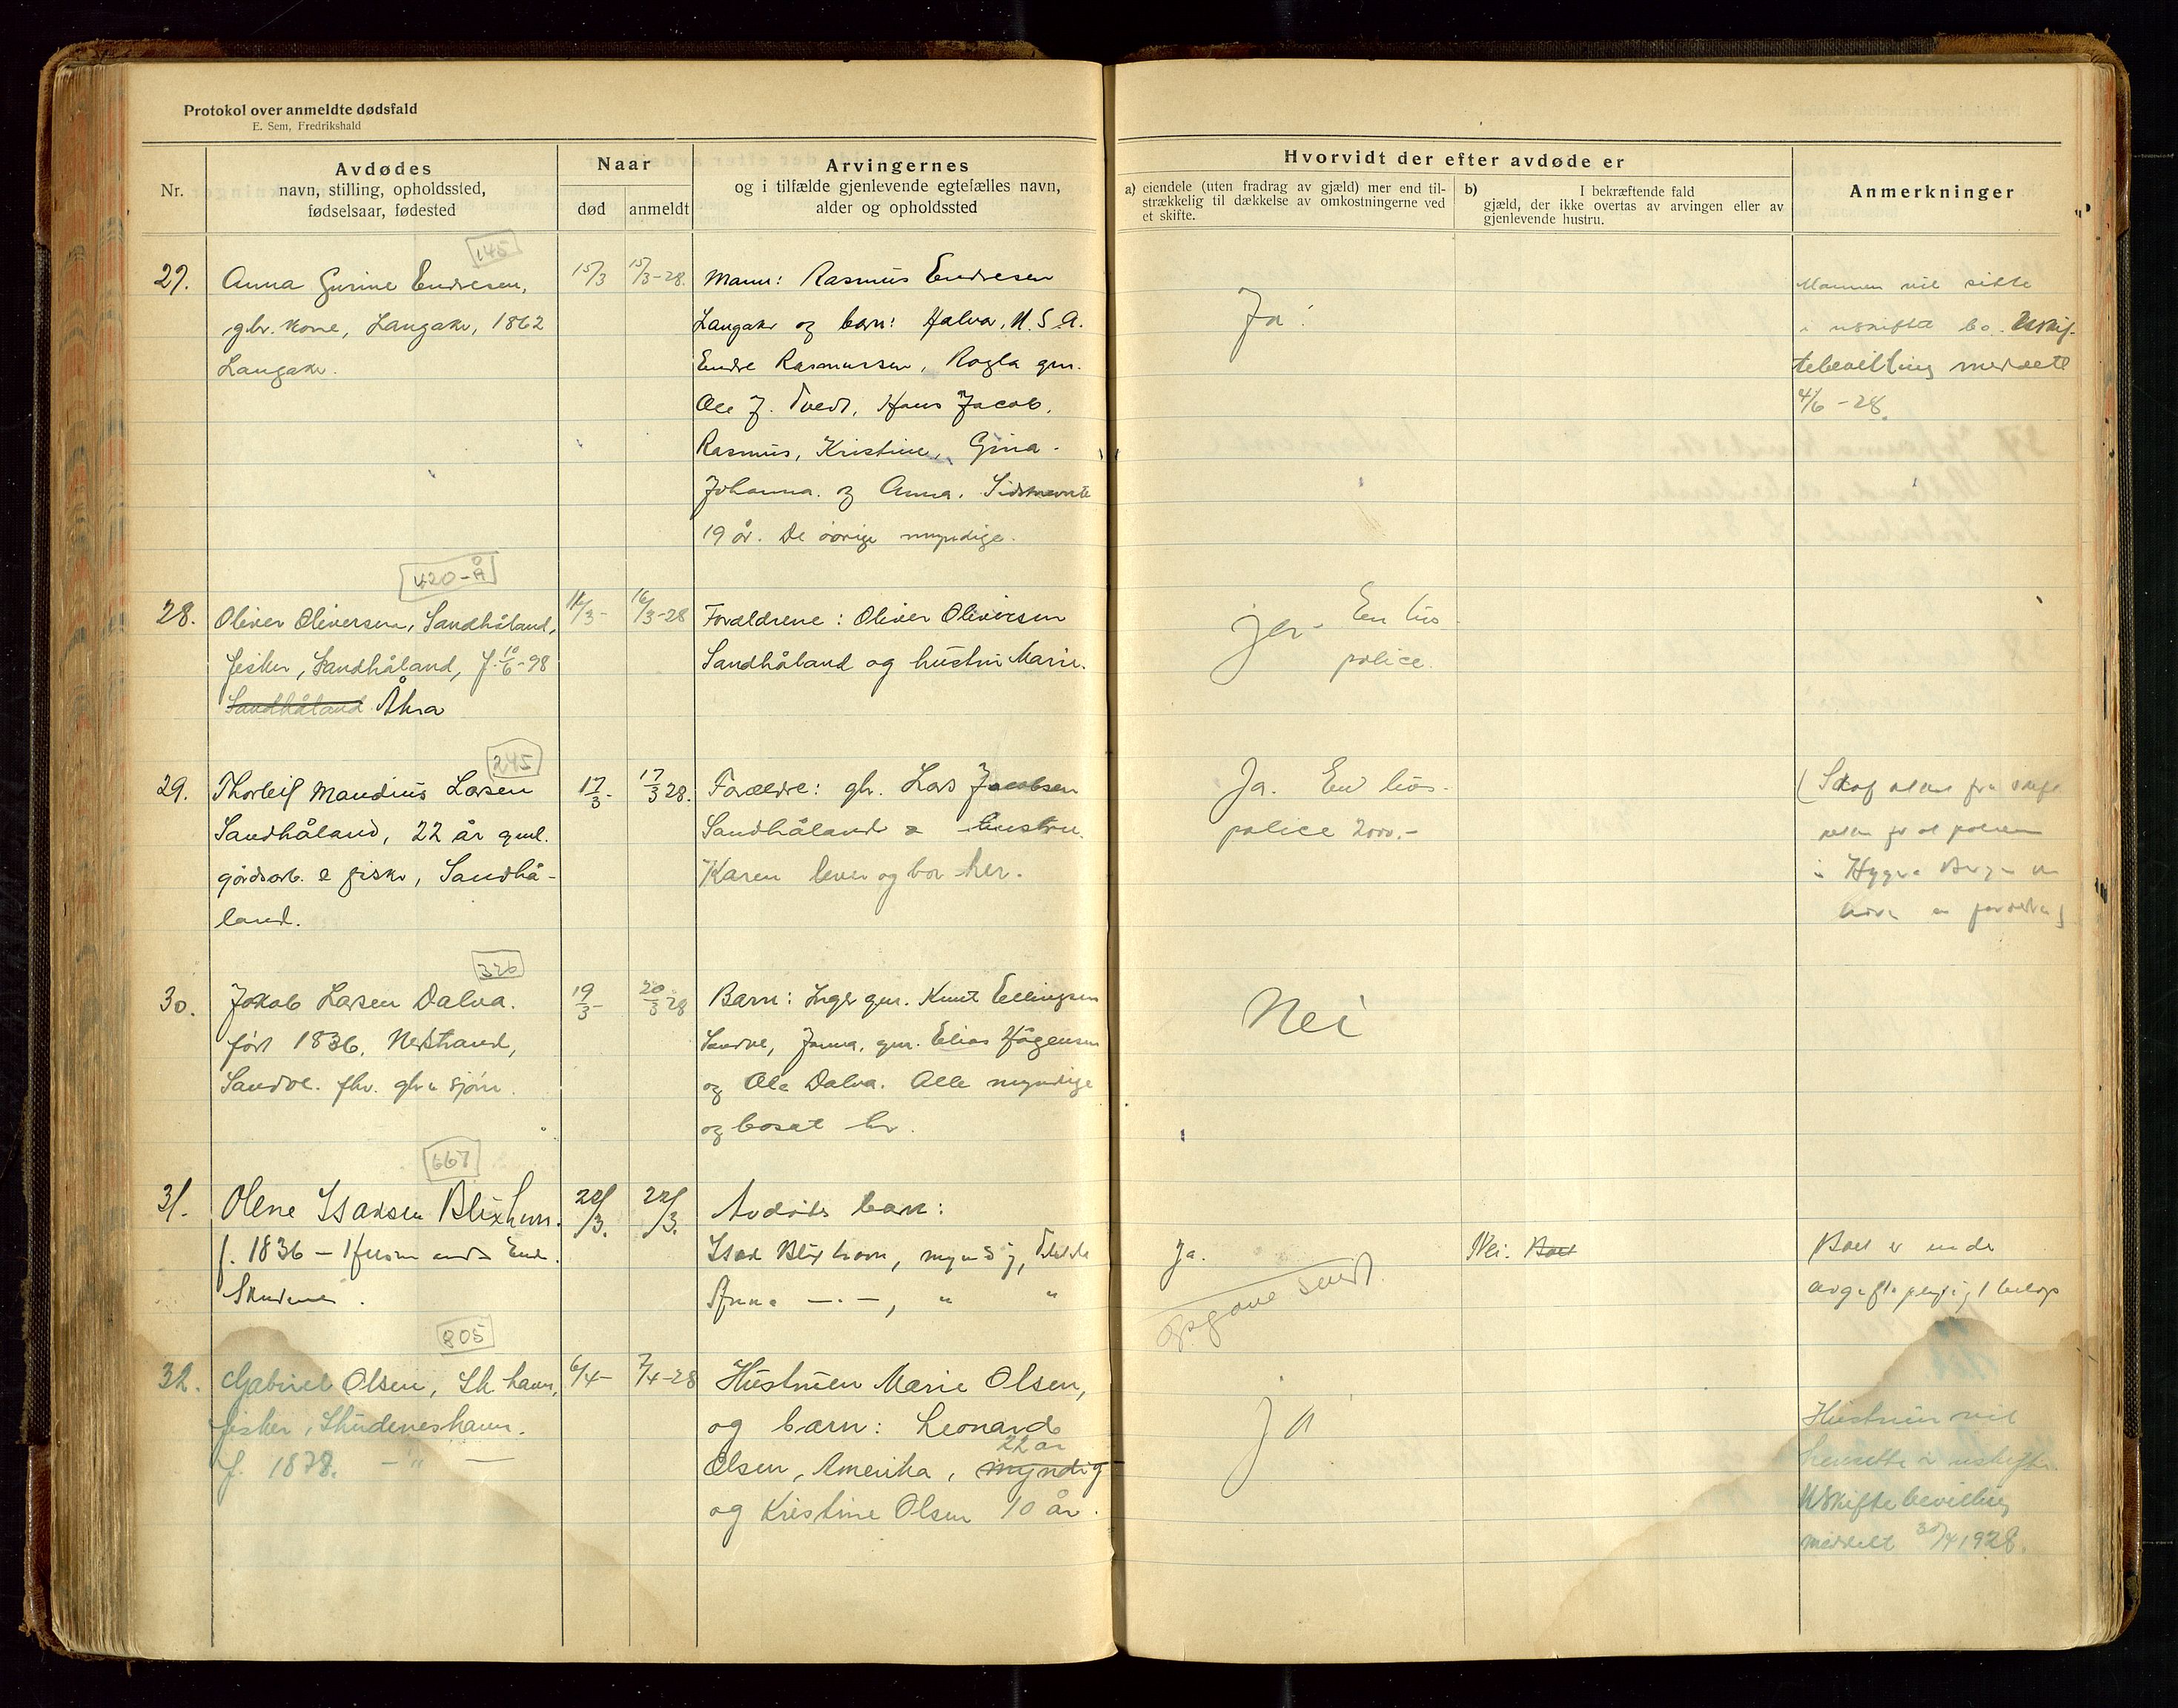 Protokol over anmeldte dødsfald
E. Sem, Fredrikshald
Nr.
Avdødes
navn, stilling, opholdssted,
fødselsaar, fødested
Naar
død
anmeldt
Arvingernes
og i tilfælde gjenlevende egtefælles navn,
alder og opholdssted
Hvorvidt der efter avdøde er
a) eiendele (uten fradrag av gjæld) mer end til-
strækkelig til dækkelse av omkostningerne ved
et skifte.
b) I bekræftende fald
gjæld, der ikke overtas av arvingen eller av
gjenlevende hustru.
Anmerkninger
145
27.
Anna Gurine Endresen,
gbr. kone, Langaker, 1862
Langaker.
15/3
15/3-28.
Mann: Rasmus Endresen
Langaker og barn: Halvor, U.S.A.
Endre Rasmussen, Ragla gm.
Ole J. Tvedt, Hans Jacob,
Rasmus, Kristine, Gina
Johanna og Anna. Sidstnevnte
19 år. De øvrige myndige.
Ja
Mannen vil sitte
i uskiftet bo. Uskif-
tebevilling meddelt
4/6-28.
420-Å
28.
Oliver Oliversen, Sandhåland,
fisker, Sandhåland, f. 10/6-98
Sandhåland Åkra
16/3-28
Forældrene: Oliver Oliversen
Sandhåland og hustru Marie.
ja- En livs
police.
245
29.
Thorleif Mandius Larsen
Sandhåland, 22 år gml.
gårdsarb. & fisker, Sandhå-
land.
17/3-
17/3 28.
Forældre: gbr. Lars Jacobsen
Sandhåland & hustru
Karen lever og bor her.
Ja. En livs-
police 2000.-
326
30.
Jakob Larsen Dalva.
født 1836. Nedstrand,
Sandve. fhv. gbr & sjøm.
19/3-
20/3 28
Barn: Inger gm. Knut Ellingsen
Sandve, Janna, gm. Elias Hågensen
og Ole Dalva. Alle myndige
og bosat her.
Nei
667
31.
Olene Isaksen Blixhavn.
f. 1836 -
Skudenes.
22/3.
22/3.
Avdødes barn:
Isak Blixhavn, myndig,
Anna -.-, " "
Ja.
Opgave sendt.
Nei. Boet
Boet er under
avgiftspligtigt beløp
805
32.
Gabriel Olsen, Sk havn,
fisker, Skudeneshavn.
f. 1878. - " -
6/4-
7/4-28
Hustruen Marie Olsen,
og barn: Leonard
22 år
Olsen, Amerika, myndig
og Kristine Olsen 10 år.
Ja
Hustruen vil
hensitte i uskifte.
Uskiftebevilling
meddelt 30/4 1928.